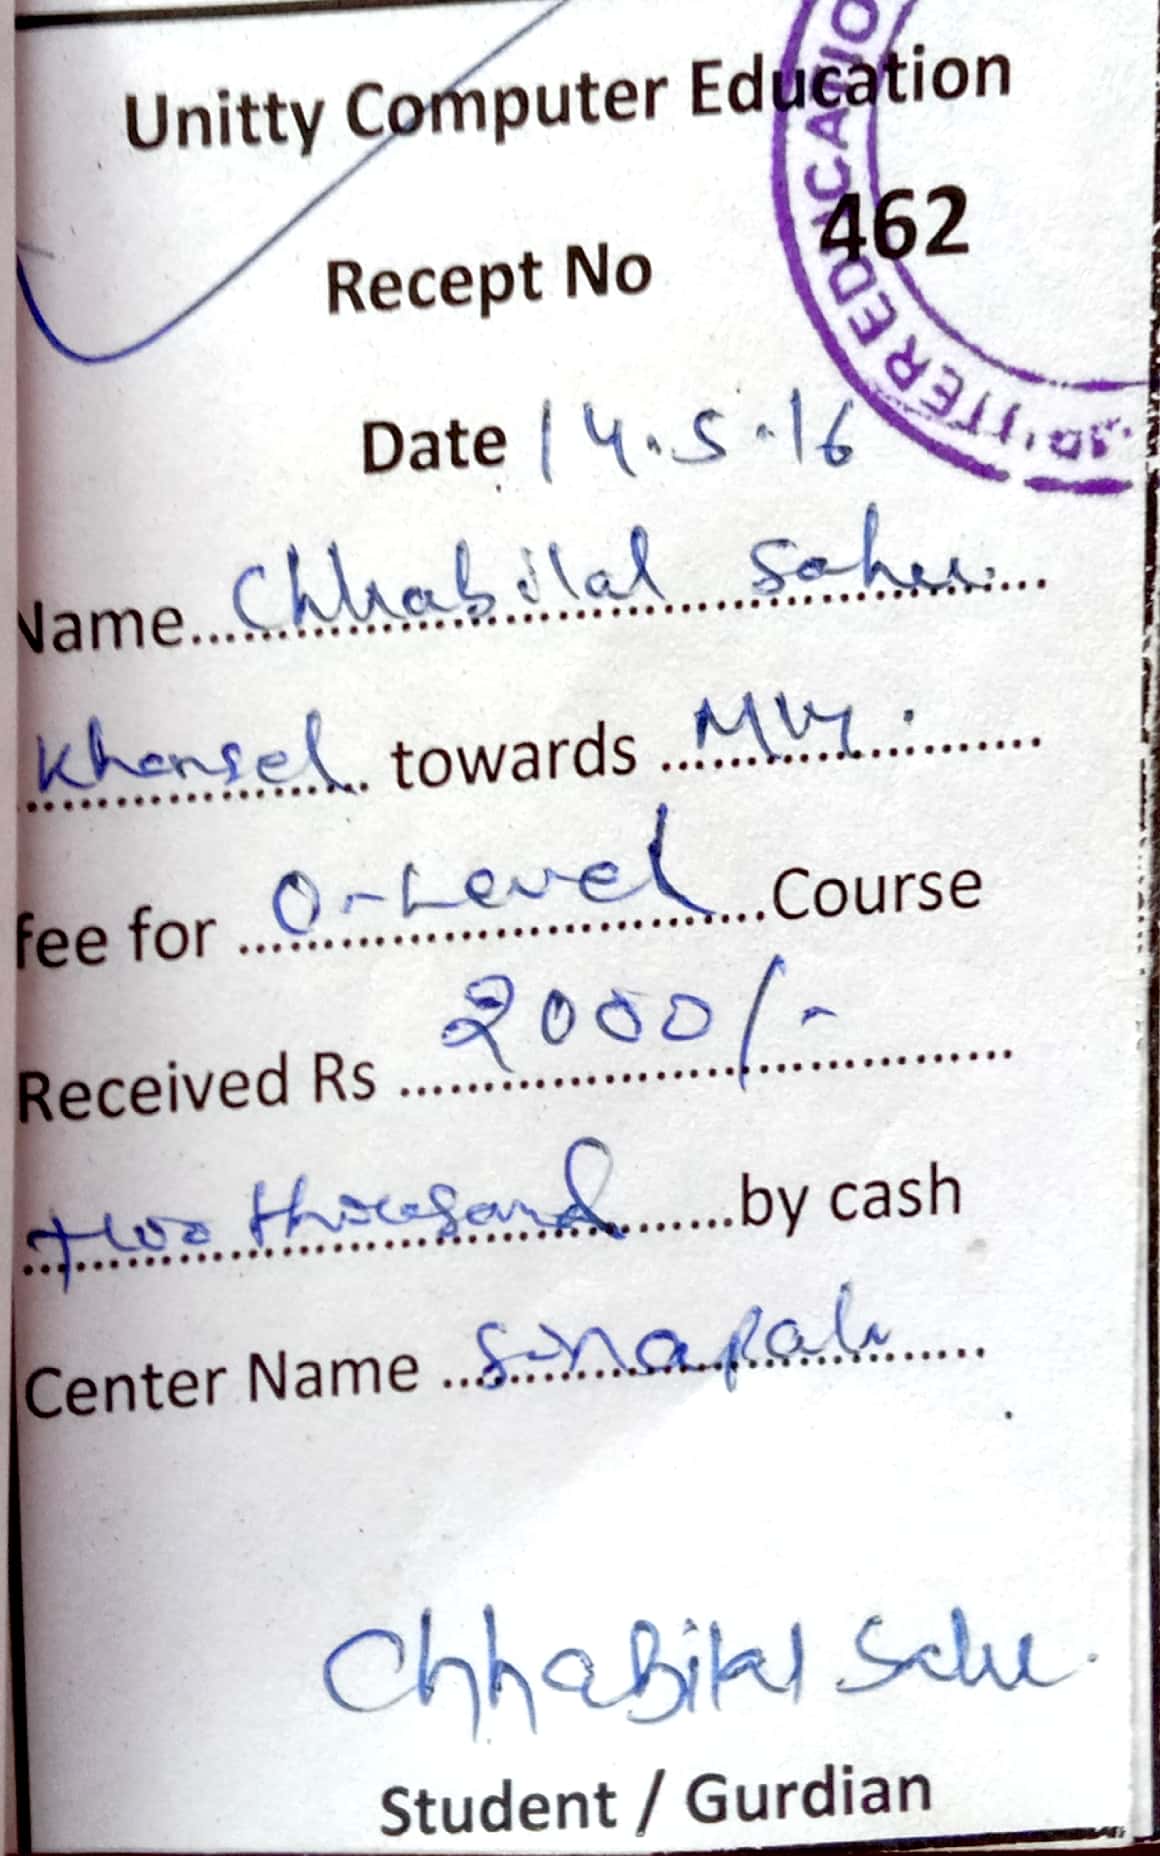 Unitty Computer Education
462
Recept No
Date 14.5.16
Name Chhabilal Sahu
Khansel towards
fee for O-Level Course
Received Rs 2000/-
two thousand by cash
Center Name Sinapali
Chhabilal Sahu
Student / Gurdian